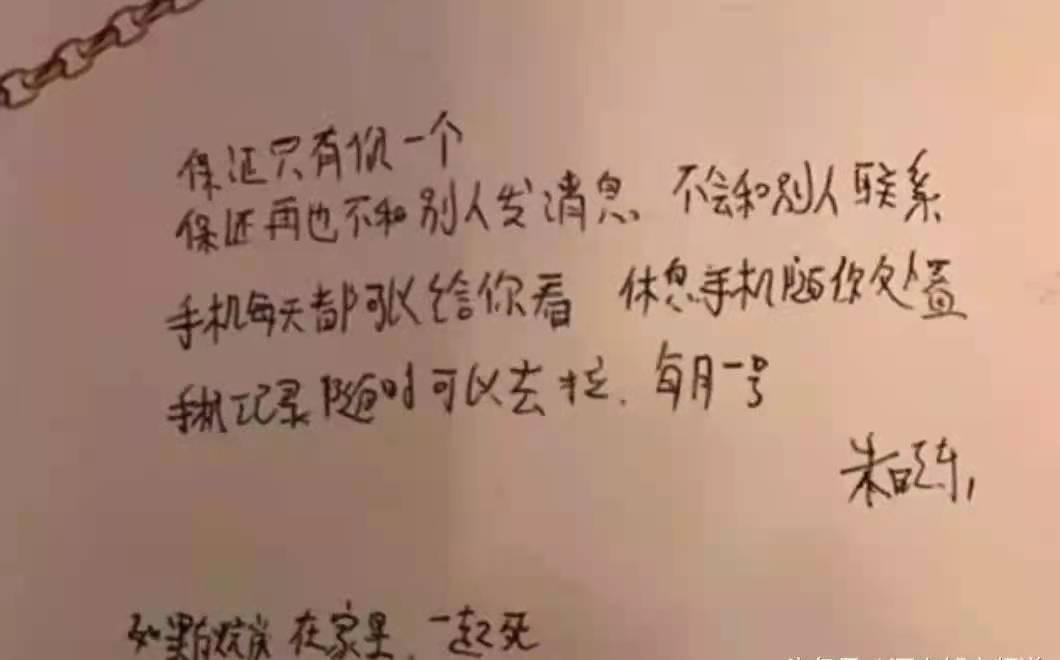 保证只有你一个
保证再也不和别人发消息 不会和别人联系
手机每天都可以给你看 休息手机随你处置
手机记录随时可以去拉. 每月一号
朱晓东,
在家里 一起死